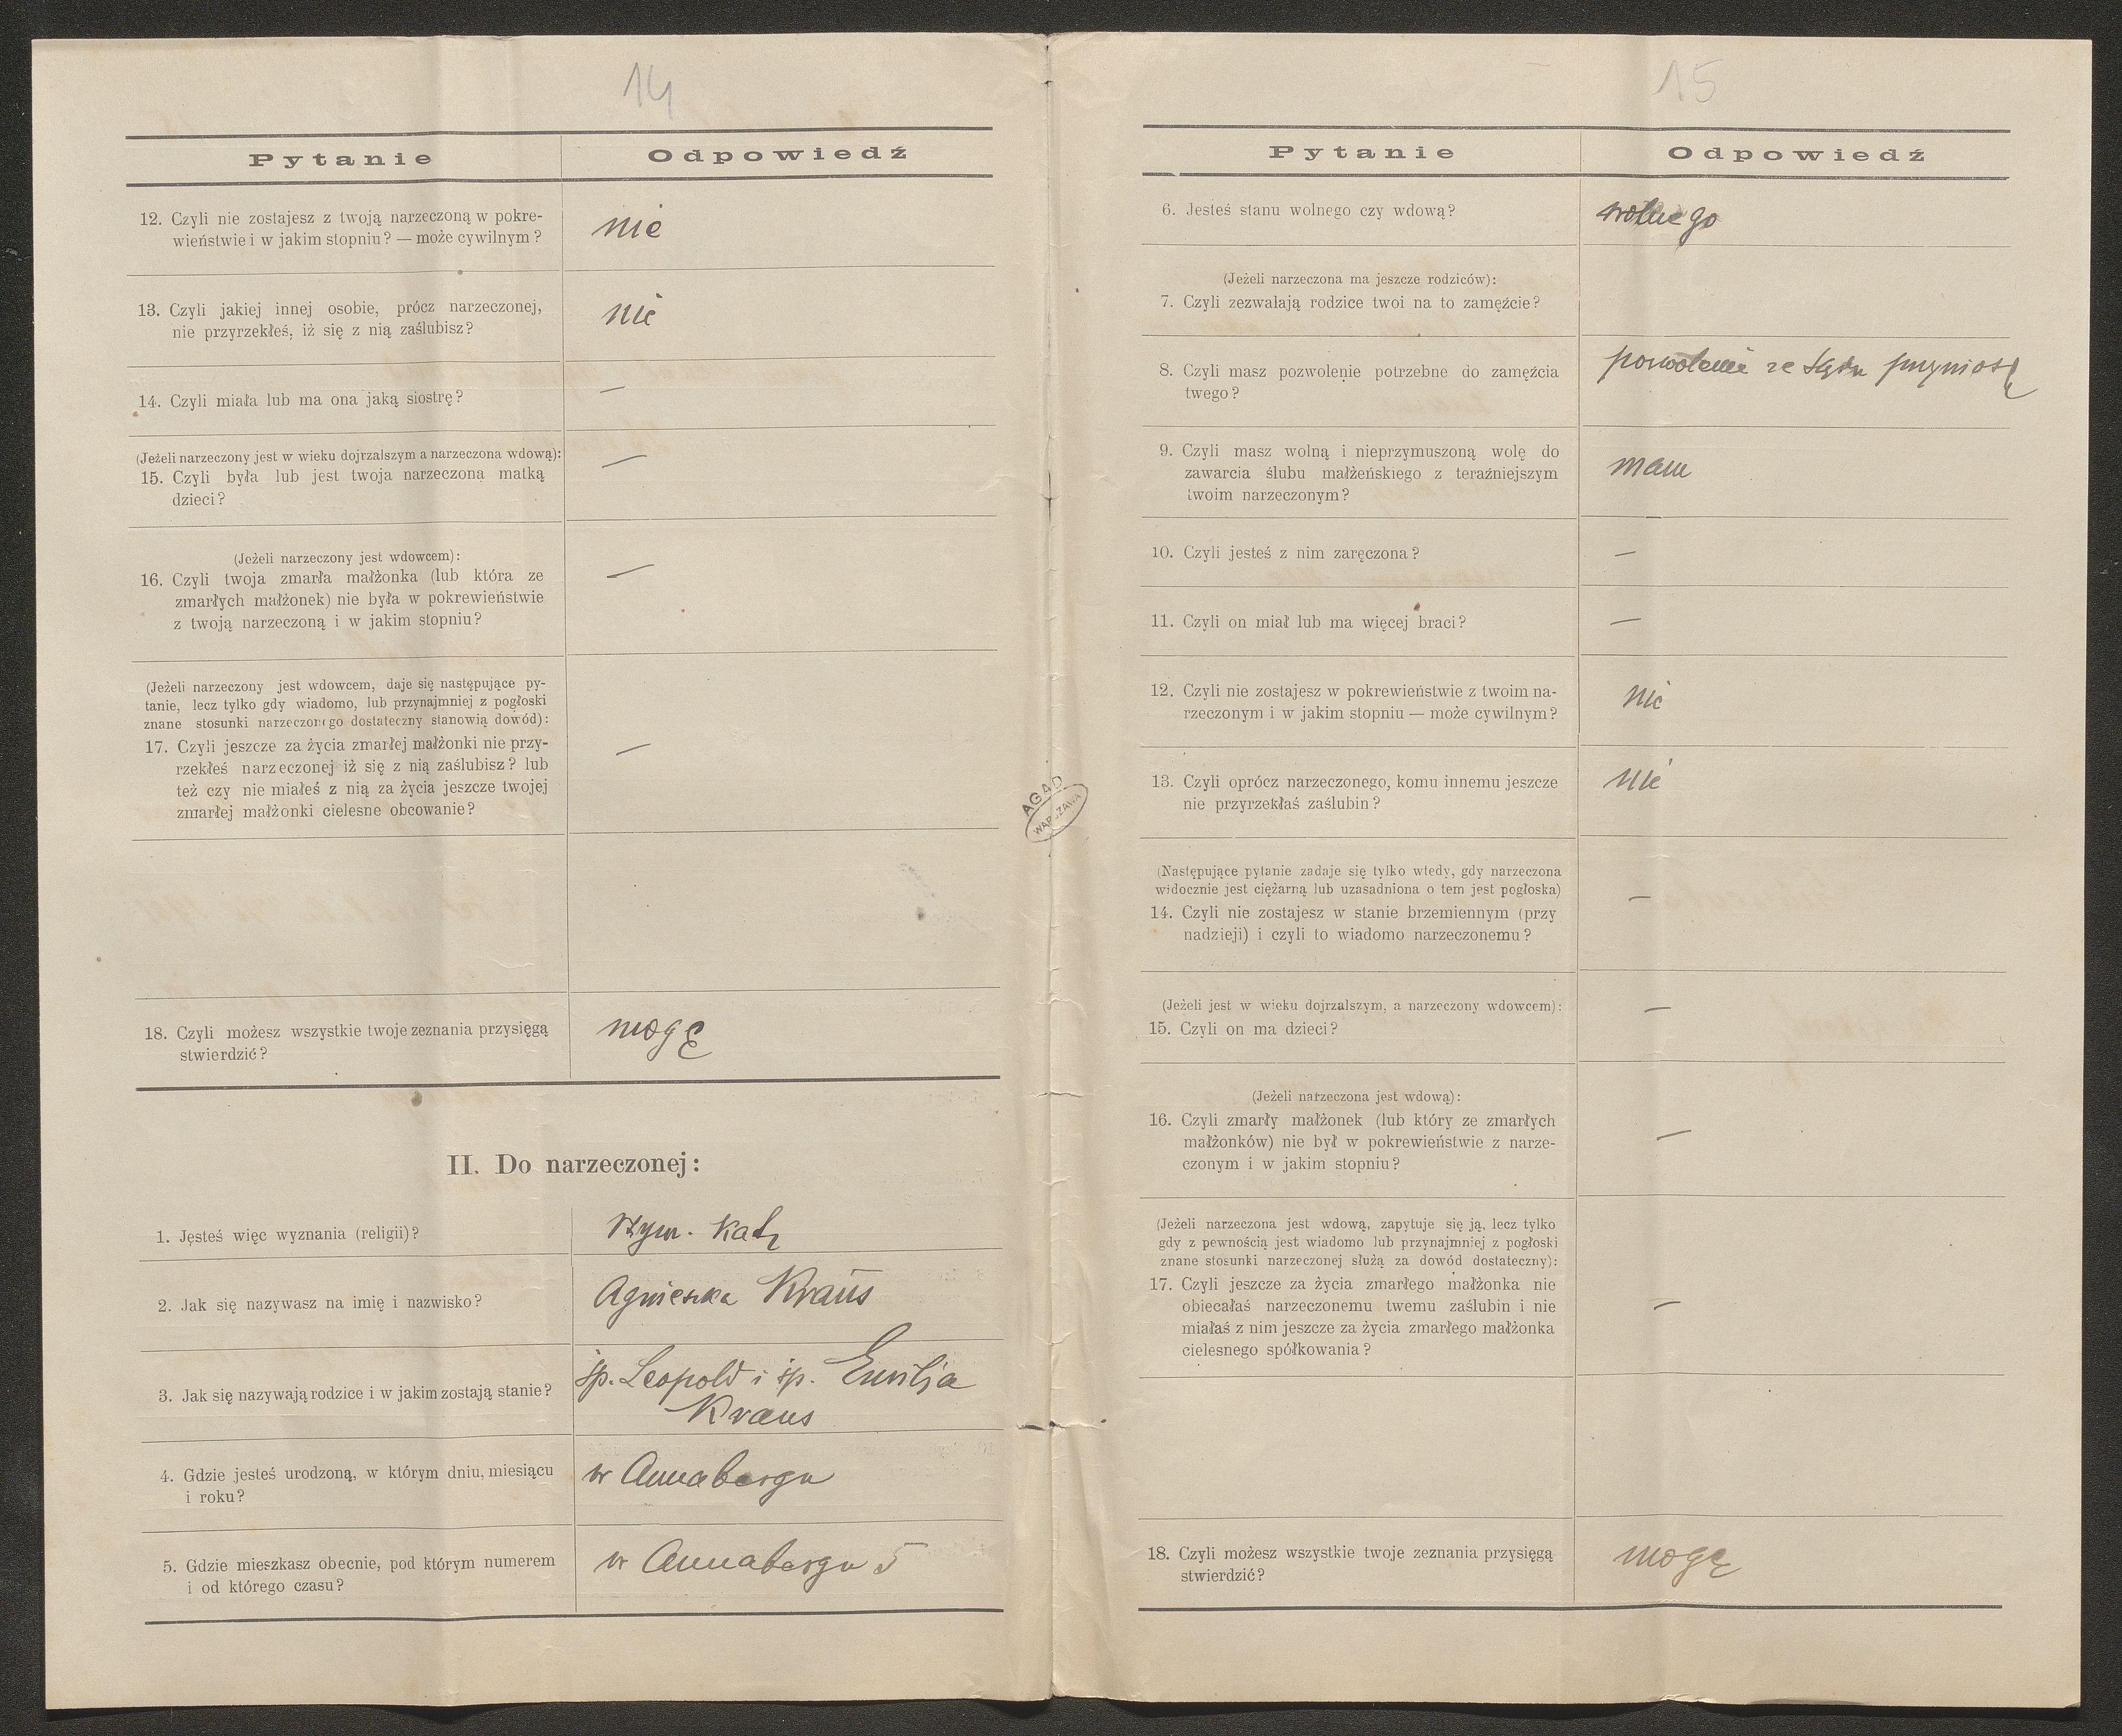 14
Pytanie
Odpowiedź
12. Czyli nie zostajesz z twoją narzeczoną w pokre-
wieństwie i w jakim stopniu? — może cywilnym?
nie
13. Czyli jakiej innej osobie, prócz narzeczonej,
nie przyrzekłeś, iż się z nią zaślubisz?
nie
14. Czyli miała lub ma ona jaką siostrę?
—
(Jeżeli narzeczony jest w wieku dojrzalszym a narzeczona wdową):
15. Czyli była lub jest twoja narzeczona matką
dzieci?
—
(Jeżeli narzeczony jest wdowcem):
16. Czyli twoja zmarła małżonka (lub która ze
zmarłych małżonek) nie była w pokrewieństwie
z twoją narzeczoną i w jakim stopniu?
—
(Jeżeli narzeczony jest wdowcem, daje się następujące py-
tanie, lecz tylko gdy wiadomo, lub przynajmniej z pogłoski
znane stosunki narzeczonego dostateczny stanowią dowód):
17. Czyli jeszcze za życia zmarłej małżonki nie przy-
rzekłeś narzeczonej iż się z nią zaślubisz? lub
też czy nie miałeś z nią za życia jeszcze twojej
zmarłej małżonki cielesne obcowanie?
—
18. Czyli możesz wszystkie twoje zeznania przysięgą
stwierdzić?
mogę
II. Do narzeczonej:
1. Jęsteś więc wyznania (religii)?
Rzym. Kat.
2. Jak się nazywasz na imię i nazwisko?
Agnieszka Kraus
3. Jak się nazywają rodzice i w jakim zostają stanie?
śp. Leopold i śp. Emilja
Kraus
4. Gdzie jesteś urodzoną, w którym dniu, miesiącu
i roku?
w Annabergu
5. Gdzie mieszkasz obecnie, pod którym numerem
i od którego czasu?
w Annabergu 5
AGAD
WARSZAWA
15
Pytanie
Odpowiedź
6. Jesteś stanu wolnego czy wdową?
wolnego
(Jeżeli narzeczona ma jeszcze rodziców):
7. Czyli zezwalają rodzice twoi na to zamęźcie?
8. Czyli masz pozwolenie potrzebne do zamęźcia
twego?
pozwolenie ze Sądu przyniosę
9. Czyli masz wolną i nieprzymuszoną wolę do
zawarcia ślubu małżeńskiego z teraźniejszym
twoim narzeczonym?
mam
10. Czyli jesteś z nim zaręczona?
—
11. Czyli on miał lub ma więcej braci?
—
12. Czyli nie zostajesz w pokrewieństwie z twoim na-
rzeczonym i w jakim stopniu — może cywilnym?
nie
13. Czyli oprócz narzeczonego, komu innemu jeszcze
nie przyrzekłaś zaślubin?
nie
(Następujące pytanie zadaje się tylko wtedy, gdy narzeczona
widocznie jest ciężarną lub uzasadniona o tem jest pogłoska)
14. Czyli nie zostajesz w stanie brzemiennym (przy
nadzieji) i czyli to wiadomo narzeczonemu?
—
(Jeżeli jest w wieku dojrzalszym, a narzeczony wdowcem):
15. Czyli on ma dzieci?
—
(Jeżeli narzeczona jest wdową):
16. Czyli zmarły małżonek (lub który ze zmarłych
małżonków) nie był w pokrewieństwie z narze-
czonym i w jakim stopniu?
—
(Jeżeli narzeczona jest wdową, zapytuje się ją, lecz tylko
gdy z pewnością jest wiadomo lub przynajmniej z pogłoski
znane stosunki narzeczonej służą za dowód dostateczny):
17. Czyli jeszcze za życia zmarłego małżonka nie
obiecałaś narzeczonemu twemu zaślubin i nie
miałaś z nim jeszcze za życia zmarłego małżonka
cielesnego spółkowania?
—
18. Czyli możesz wszystkie twoje zeznania przysięgą
stwierdzić?
mogę